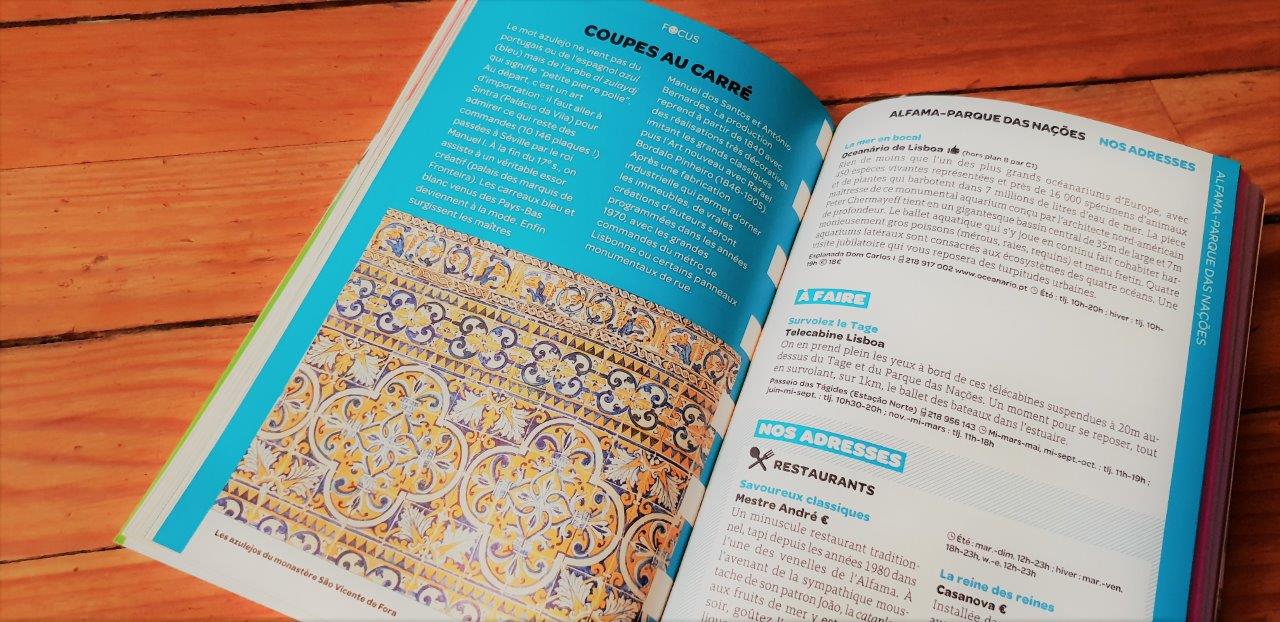 FOCUS
COUPES AU CARRÉ
Le mot azulejo ne vient pas du
portugais ou de l'espagnol azul
(bleu) mais de l'arabe al zulaydj
qui signifie "petite pierre polie".
Au départ, c'est un art
d'importation : il faut aller à
Sintra (Palácio da Vila) pour
admirer ce qui reste des
commandes (10 146 plaques !)
passées à Séville par le roi
Manuel I. À la fin du 17e s., on
assiste à un véritable essor
créatif (palais des marquis de
Fronteira). Les carreaux bleu et
blanc venus des Pays-Bas
deviennent à la mode. Enfin
surgissent les maîtres
Manuel dos Santos et António
Bernardes. La production
reprend à partir de 1840 avec
des réalisations très décoratives
imitant les grands classiques
puis l'Art nouveau avec Rafael
Bordalo Pinheiro (1846-1905).
Après une fabrication
industrielle qui permet d'orner
les immeubles, de vraies
créations d'auteurs seront
programmées dans les années
1970, avec les grandes
commandes du métro de
Lisbonne ou certains panneaux
monumentaux de rue
Les azulejos du monastère São Vicente de Fora
ALFAMA-PARQUE DAS NAÇÕES NOS ADRESSES
La mer en bocal
Oceanário de Lisboa (hors plan 8 par C1)
Rien de moins que l'un des plus grands océanariums d'Europe, avec
450 espèces vivantes représentées et près de 16 000 spécimens d'animaux
et de plantes qui barbotent dans 7 millions de litres d'eau de mer. La pièce
maîtresse de ce monumental aquarium conçu par l'architecte nord-américain
Peter Chermayeff tient en un gigantesque bassin central de 35m de large et 7m
de profondeur. Le ballet aquatique qui s'y joue en continu fait cohabiter har-
monieusement gros poissons (mérous, raies, requins) et menu fretin. Quatre
aquariums latéraux sont consacrés aux écosystèmes des quatre océans. Une
visite jubilatoire qui vous reposera des turpitudes urbaines.
Esplanada Dom Carlos I 218 917 002 www.oceanario.pt Été : tlj. 10h-20h ; hiver : tlj. 10h-
19h 18€
À FAIRE
Survolez le Tage
Telecabine Lisboa
On en prend plein les yeux à bord de ces télécabines suspendues à 20m au-
dessus du Tage et du Parque das Nações. Un moment pour se reposer, tout
en survolant, sur 1km, le ballet des bateaux dans l'estuaire.
Passeio das Tágides (Estação Norte) 218 956 143 Mi-mars-mai, mi-sept.-oct. : tlj. 11h-19h ;
juin-mi-sept. : tlj. 10h30-20h ; nov.-mi-mars : tlj. 11h-18h
NOS ADRESSES
RESTAURANTS
Savoureux classiques
Mestre André €
Un minuscule restaurant tradition-
nel, tapi depuis les années 1980 dans
l'une des venelles de l'Alfama. À
l'avenant de la sympathique mous-
tache de son patron João, la
aux fruits de mer y
soir, goûtez
Été : mar.-dim. 12h-23h ; hiver : mar.-ven.
18h-23h, w.-e. 12h-23h
La reine des reines
Casanova €
Installée
ALFAMA-PARQUE DAS NAÇÕES